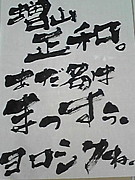 増山
正和。
まだ蕾す
まっすぐ。
ヨロシクね。